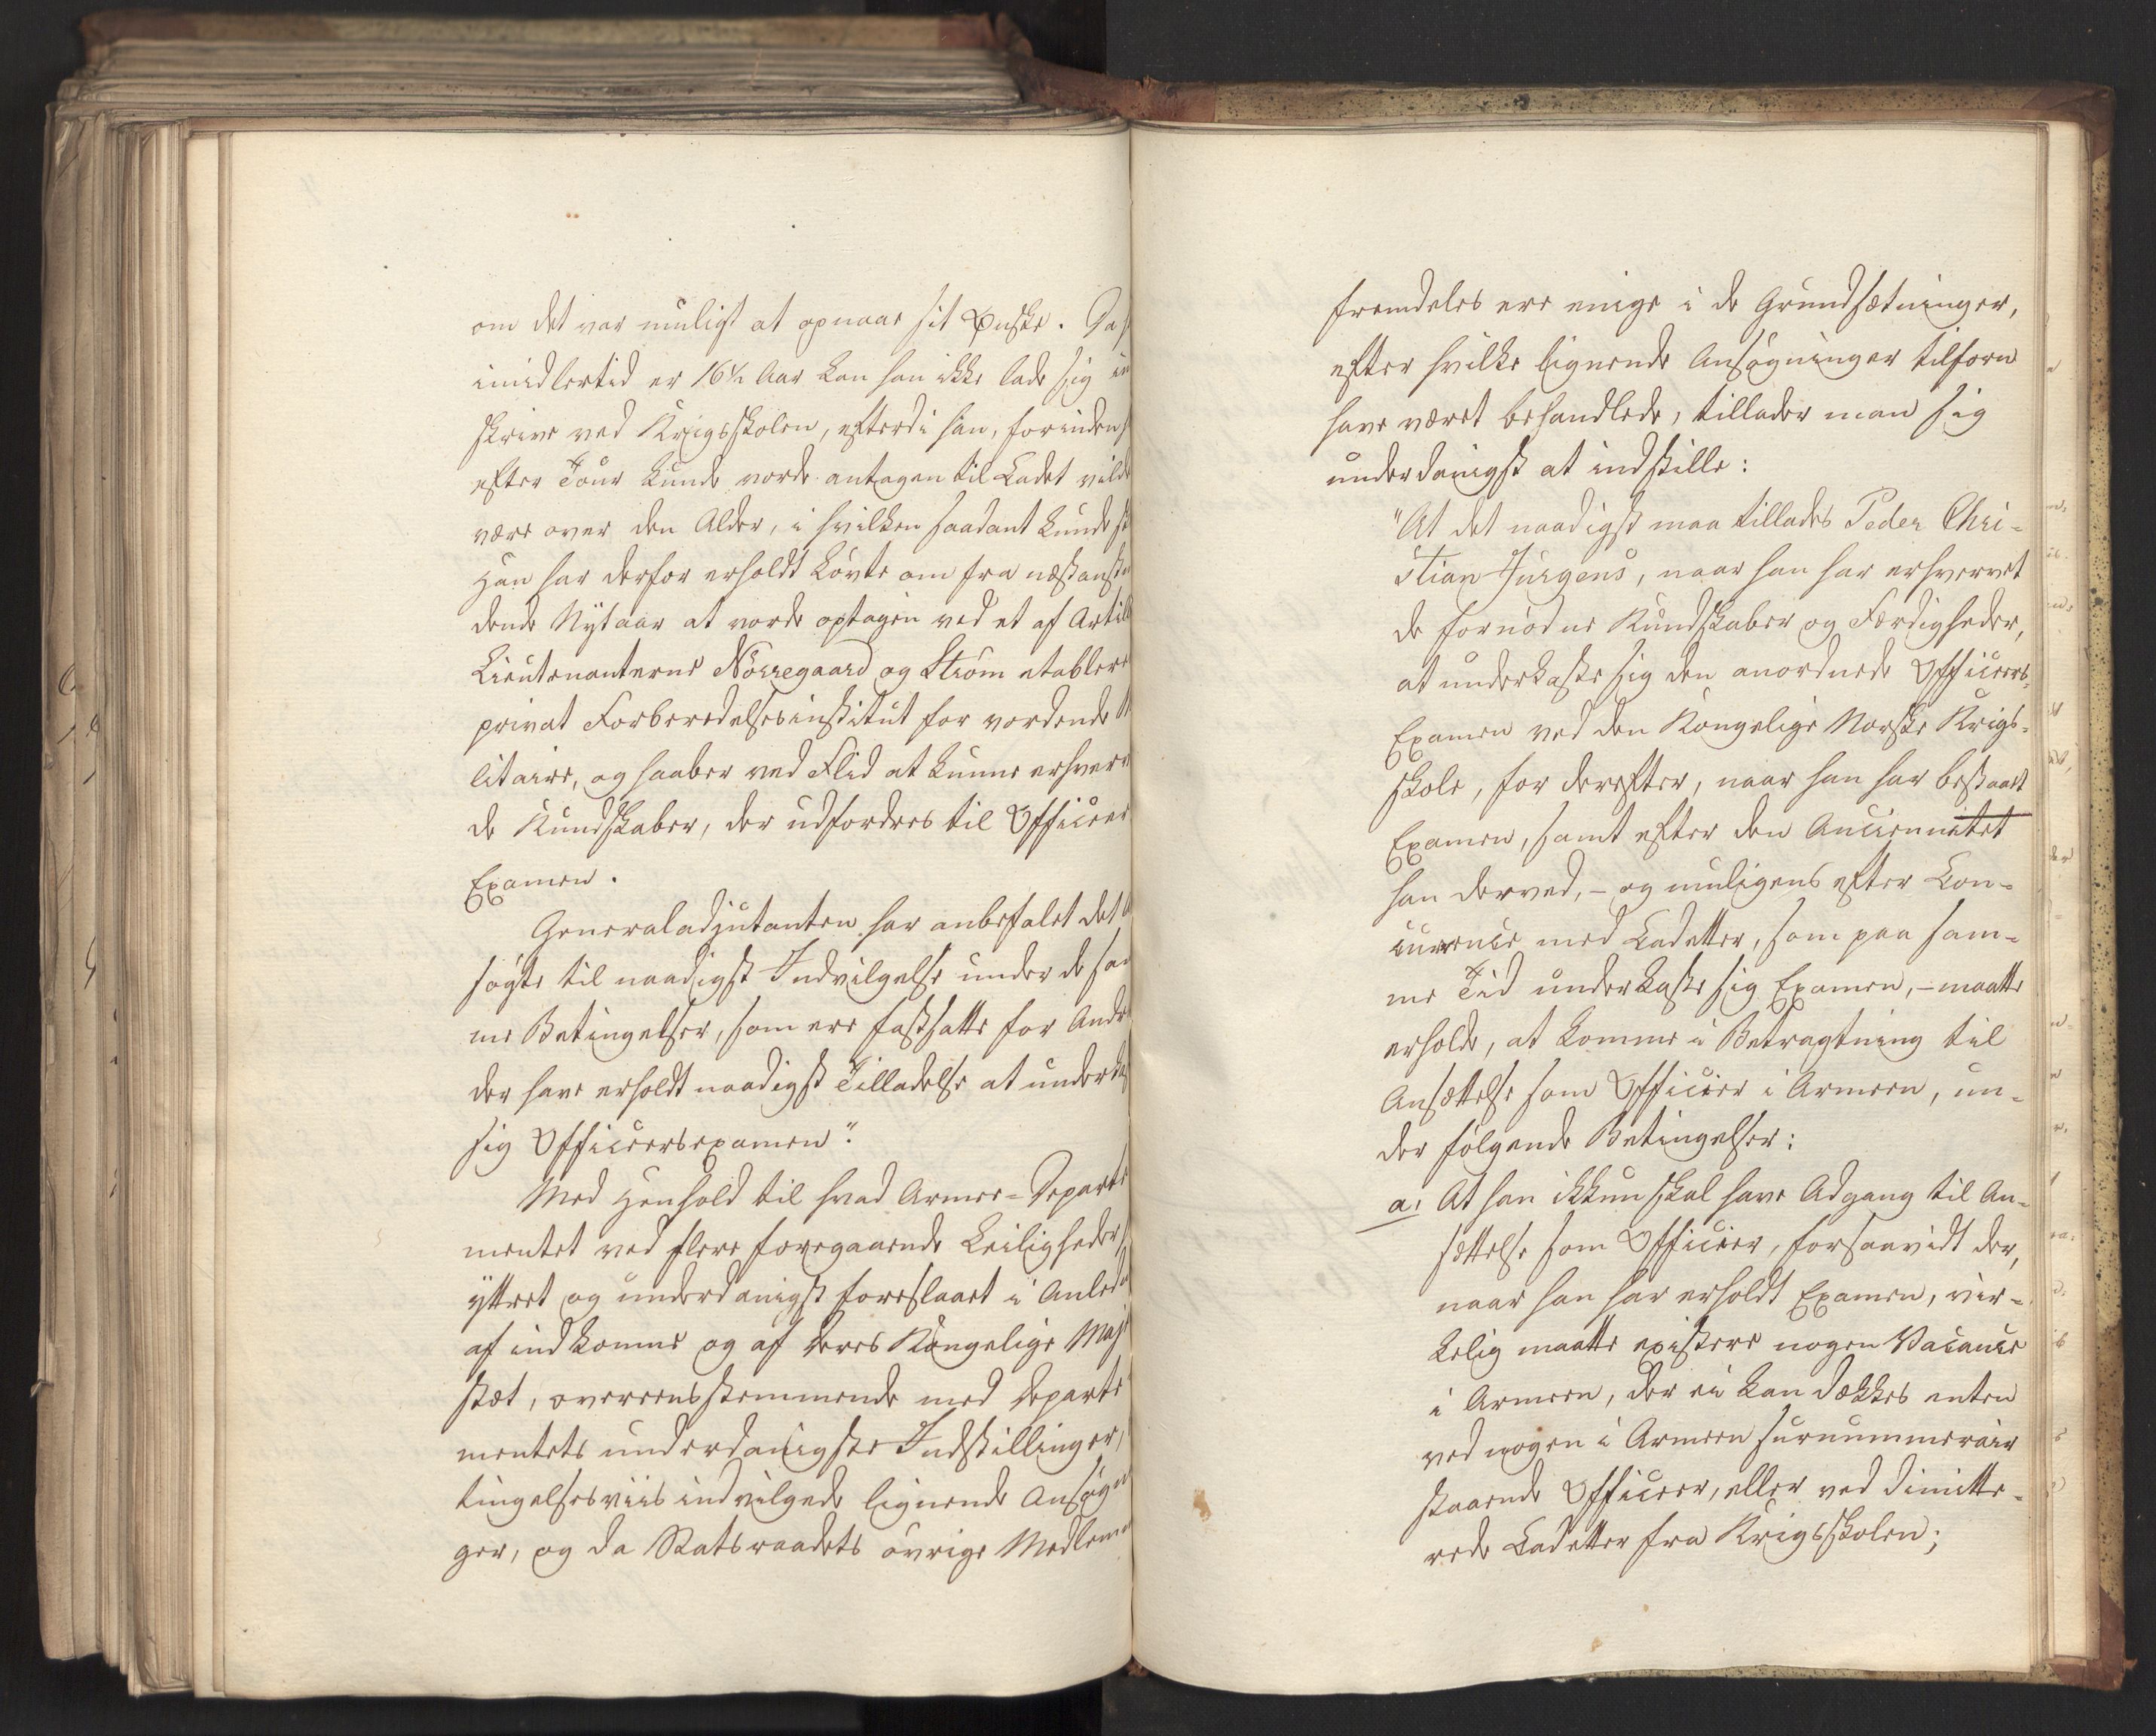 om det var muligt at opnaae sit Ønske. Da
imidlertid er 16½ Aar kan han ikke lade sig in
skrive ved Krigsskolen, efterdi han, forinden
efter Tour kunde vorde antagen til Cadet vilde
være over den Alder, i hvilken saadant kunde
Han har derfor erholdt Løvte om fra næstanstun
dende Nytaar at vorde optagen ved et af Artill
Lieutenanterne Nørregaard og Strøm etablere
privat Forberedelsesinstitut for vordende
litaire, og haaber ved Flid at kunne erhverv
de Kundskaber, der udfordres til Officeer
Examen.
Generaladjutanten har anbefalet det
søgte til naadigst Indvilgelse under de sam
me Betingelser, som ere fastsatte for Andre
der have erholdt naadigst Tilladelse at underkas
sig Officeersexamen".
Med Henhold til hvad Armee-Departe
mentet ved flere foregaaende Leiligheder
yttret og underdanigst foreslaaet i Anled
af indkomne og af Deres Kongelige Maje
stæt, overeensstemmende med Departe
mentets underdanigste Indstillinger,
tingelsesviis indvilgede lignende Ansøgn
ger, og da Statsraadets øvrige Medlem
fremdeles ere enige i de Grundsætninger,
efter hvilke lignende Ansøgninger tilforn
have været behandlede, tillader man sig
underdanigst at indstille:
"At det naadigst maa tillades Peder Chri-
stian Jürgens, naar han har erhvervet
de fornødne Kundskaber og Færdigheder,
at underkaste sig den anordnede Officeers-
Examen ved den Kongelige Norske Krigs-
skole, for derefter, naar han har bestaaet
Examen, samt efter den Anciennitet
han derved, - og muligens efter Con-
currence med Cadetter, som paa sam-
me Tid underkaste sig Examen, - maatte
erholde, at komme i Betragtning til
Ansættelse som Officier i Armeen, un-
der følgende Betingelser:
a, At han ikkun skal have Adgang til An-
sættelse som Officier, forsaavidt der,
naar han har erholdt Examen, vir-
kelig maatte existere nogen Vacance
i Armeen, der ei kan dækkes enten
ved nogen i Armeen surnummerair
staaende Officeer, eller ved dimitte-
rede Cadetter fra Krigsskolen;